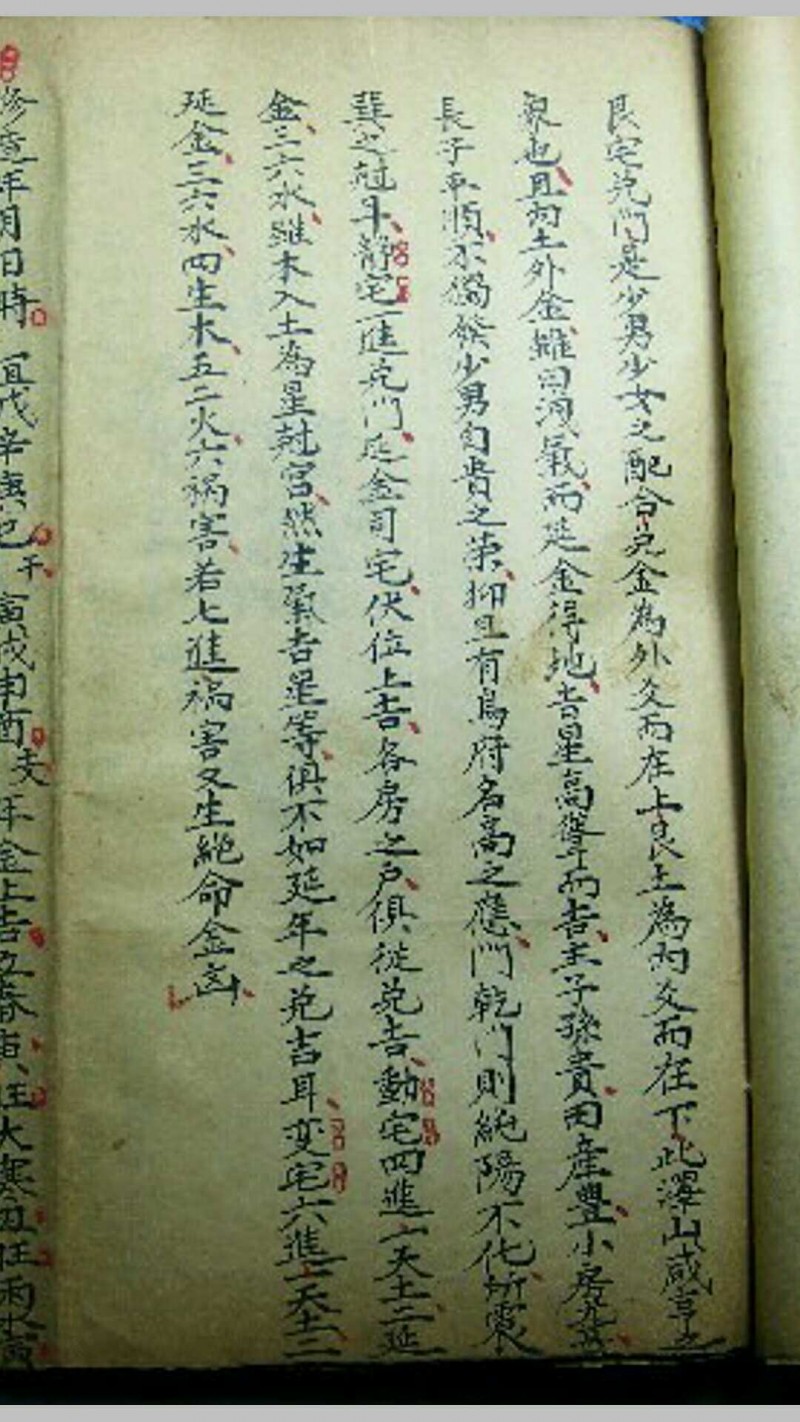 艮宅兌門是少男少女之配合兌金為外爻而在上艮土為內爻而在下此澤山咸亨之
象也且內土外金雖曰洩氣而延金得地吉星高聳而吉主子孫貴田產豐小房尤
長子平順不獨發少男向貴之榮抑且有烏府名高之應門乾門則純陽不化坼震
巽之尅斗靜宅一進兌門延金司宅伏位上吉各房之户俱從兌吉動宅四進一天土二延
金三六水雖木入土為星尅宮然生氣吉星等俱不如延年之兌吉耳变宅六進一天土二
延金三六水四生木五二火六禍害若七進禍害又生絕命金凶
修 年月日時 宜戊辛庚 干 寅戌申酉 夫
年金上吉立春寅旺大寒丑旺雨水寅